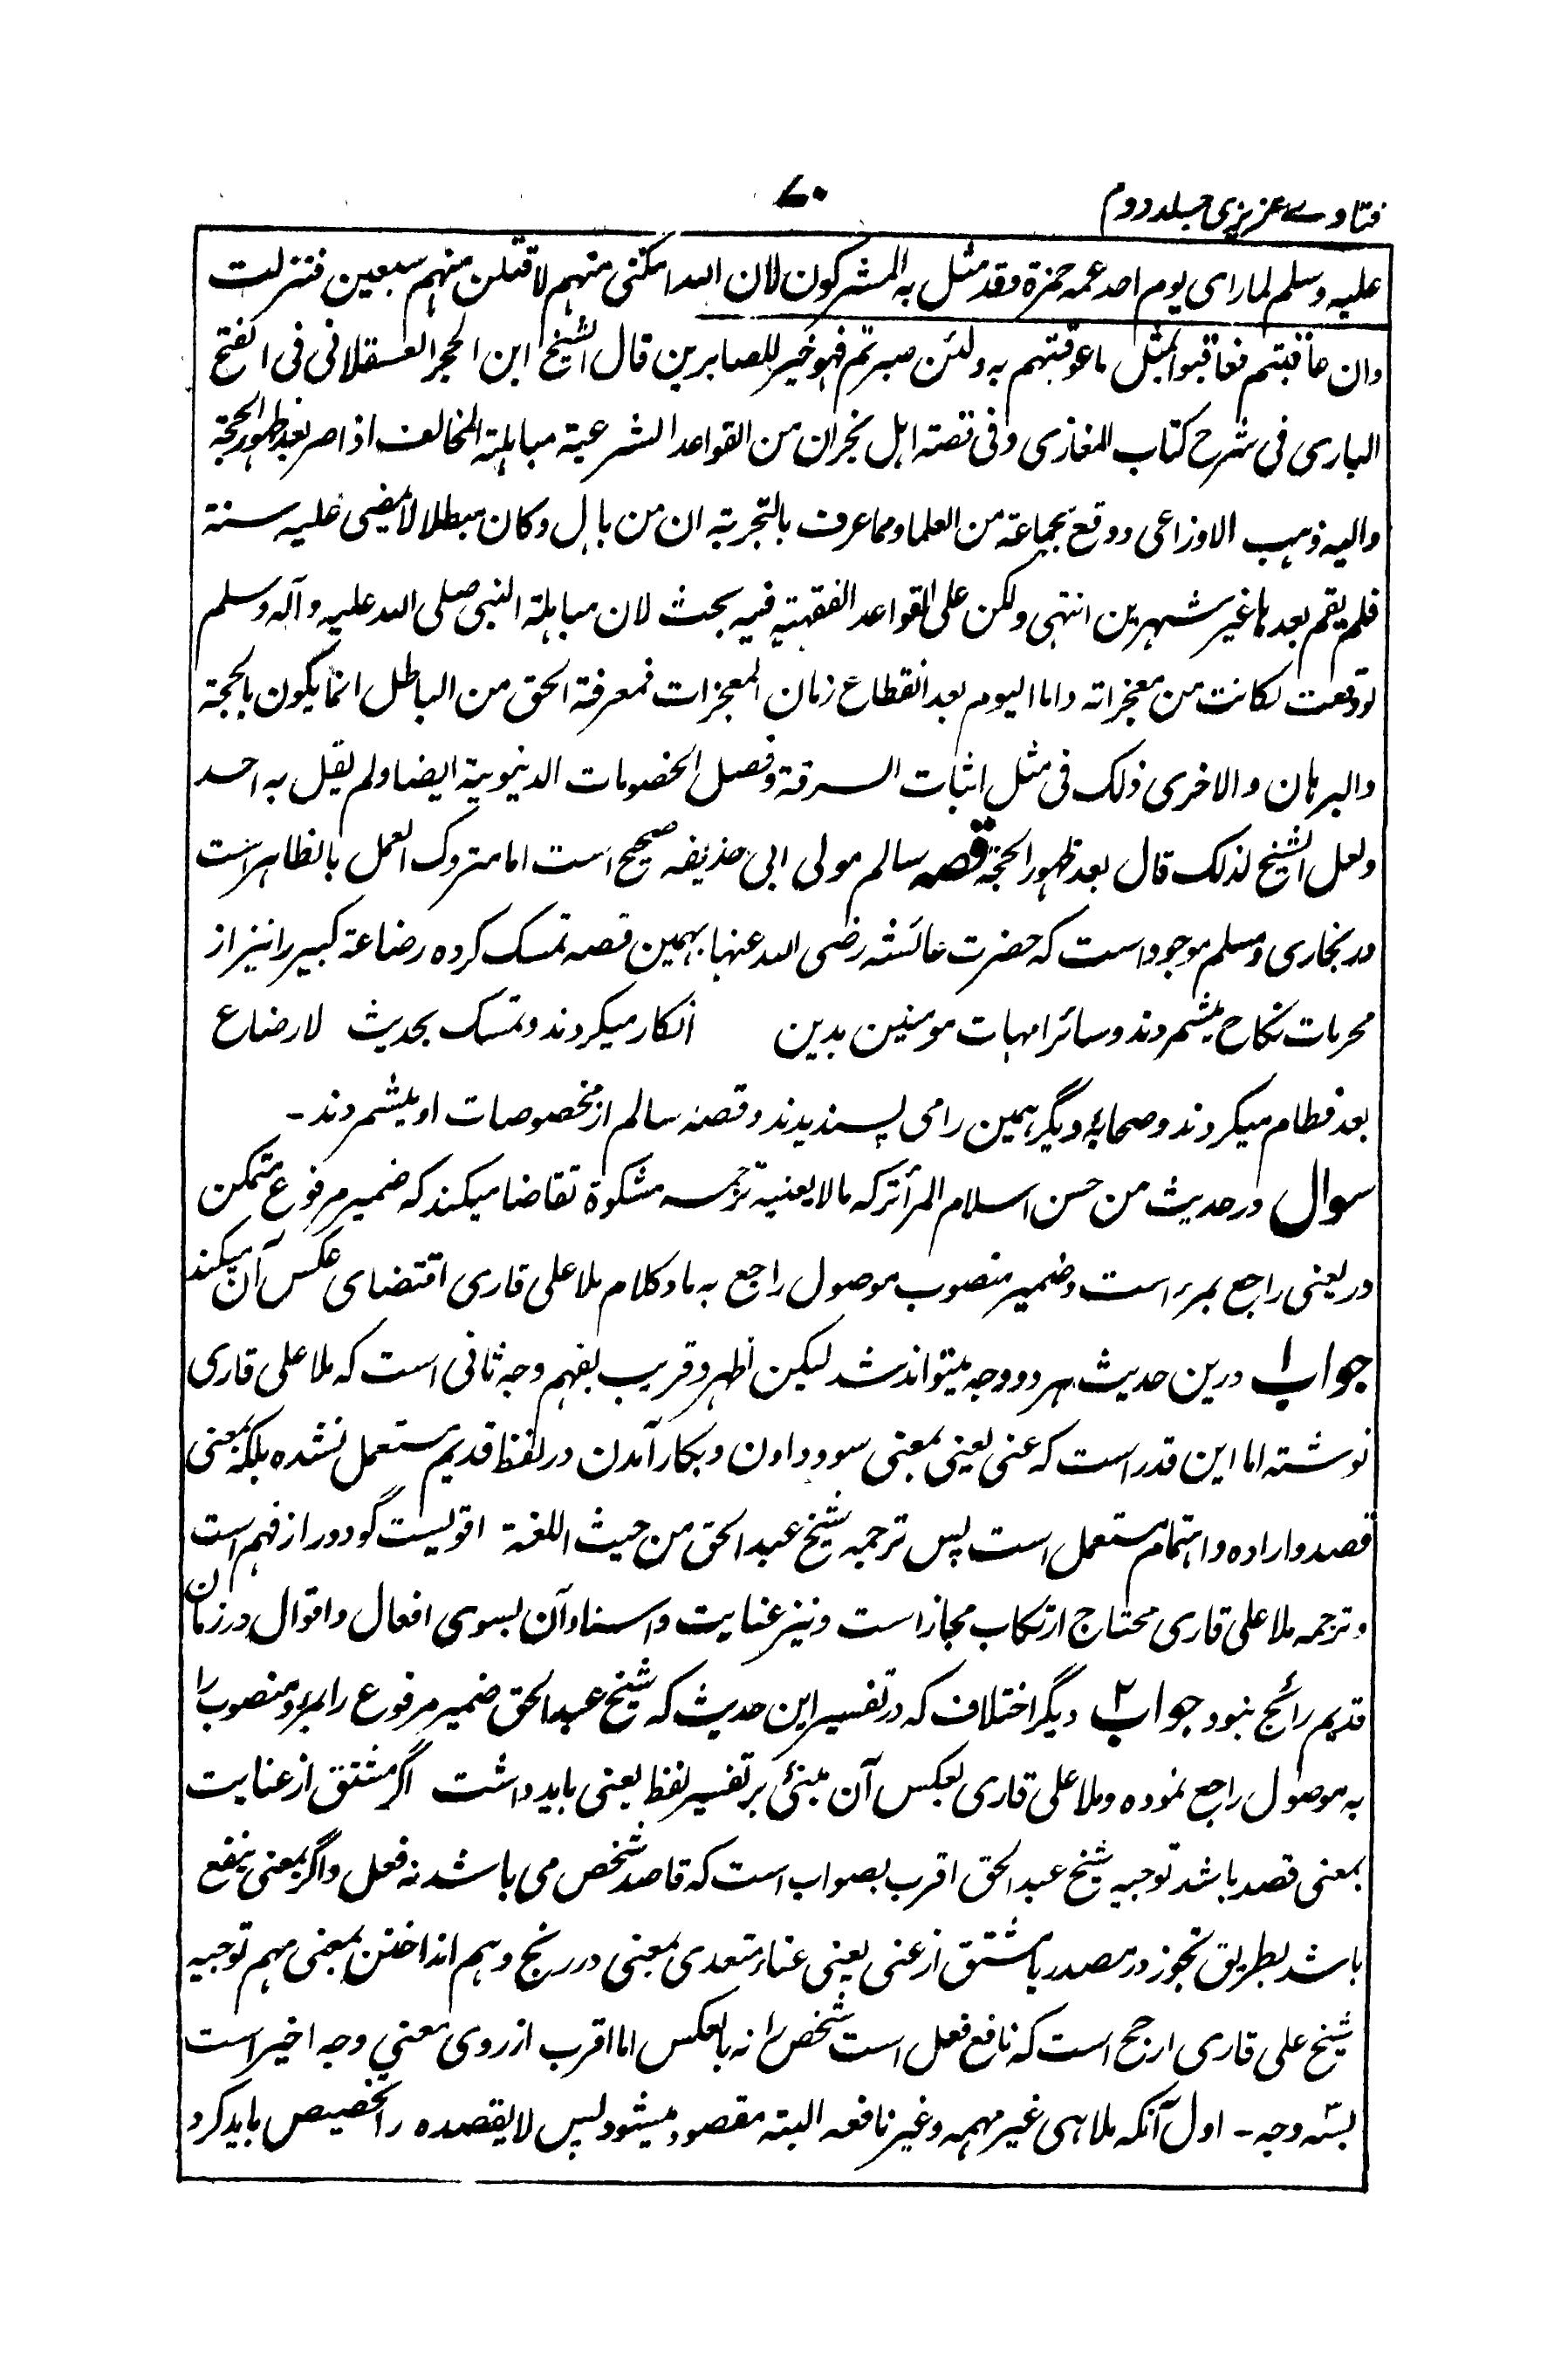 فتاوے عزیزی جلد دوم
۷۰
علیه وسلم لما رای یوم احد عمه حمزة وقد مثل به المشرکون لان الله امکننی منهم لاقتلن منهم سبعین فنزلت
وان عاقبتم فعاقبوا بمثل ما عوقبتهم به ولئن صبرتم فهو خیر للصابرین قال الشیخ ابن الحجر العسقلانی فی الفتح
الباری فی شرح کتاب المغازی وفی قصته اهل نجران من القواعد الشرعیة مباهلة المخالف اذا اصر بعد ظهور الحجة
والیه ذهب الاوزاعی ووقع بجماعة من العلما ومما عرف بالتجربة ان من باهل وکان مبطلا لا یمضی علیه سنة
فلم یقم بعدها غیر شهرین انتهی ولکن علی القواعد الفقهیة فیه بحث لان مباهلة النبی صلی الله علیه وآله وسلم
لو وقعت لکانت من معجزاته واما الیوم بعد انقطاع زمان المعجزات فمعرفة الحق من الباطل انما یکون بالحجة
والبرهان والاخری ذلک فی مثل اثبات السرقة وفصل الخصومات الدنیویة ایضا ولم یقل به احد
ولعل الشیخ لذلک قال بعد ظهور الحجة قصه سالم مولی ابی حذیفه صحیح است اما متروک العمل بالظاهر است
در بخاری و مسلم موجود است که حضرت عائشه رضی الله عنها بهمین قصه تمسک کرده رضاعة کبیر را نیز از
محرمات نکاح میشمردند وسائر امهات مومنین بدین انکار میکردند وتمسک بحدیث لا رضاع
بعد فطام میکردند وصحابهٔ دیگر همین را می پسندیدند وقصه سالم از مخصوصات او میشمردند -
سوال در حدیث من حسن اسلام المرأ ترکه ما لا یعنیه ترجمه مشکوة تقاضا میکند که ضمیر مرفوع متمکن
در یعنی راجع بمرء است وضمیر منصوب موصول راجع به ما وکلام ملا علی قاری اقتضای عکس آن میکند
جواب ۱ درین حدیث هر دو وجه میتواند شد لیکن اظهر وقریب بفهم وجه ثانی است که ملا علی قاری
نوشته اما این قدر است که عنی یعنی بمعنی سود دادن وبکار آمدن در لفظ قدیم مستعمل نشده بلکه بمعنی
قصد واراده واهتمام مستعمل است پس ترجمه شیخ عبد الحق من حیث اللغة اقویست گو دور از فهم است
وترجمه ملا علی قاری محتاج ارتکاب مجاز است ونیز عنایت واسناد آن بسوی افعال واقوال در زمان
قدیم رائج نبود جواب ۲ دیگر اختلاف که در تفسیر این حدیث که شیخ عبد الحق ضمیر مرفوع را بمرء ومنصوب را
به موصول راجع نموده وملا علی قاری بعکس آن مبنی بر تفسیر لفظ یعنی باید داشت اگر مشتق از عنایت
بمعنی قصد باشد توجیه شیخ عبد الحق اقرب بصواب است که قاصد شخص می باشد نه فعل واگر بمعنی ینفع
باشد بطریق تجوز در مصدر یا مشتق از عنی یعنی عناء متعدی بمعنی در رنج وهم انداختن بمعنی مهم توجیه
شیخ علی قاری ارجح است که نافع فعل است شخص را نه بالعکس اما اقرب از روی معنی وجه اخیر است
بسه وجه - اول آنکه ملاهی غیر مهمه وغیر نافعه البته مقصود میشود پس لا یقصده را تخصیص باید کرد